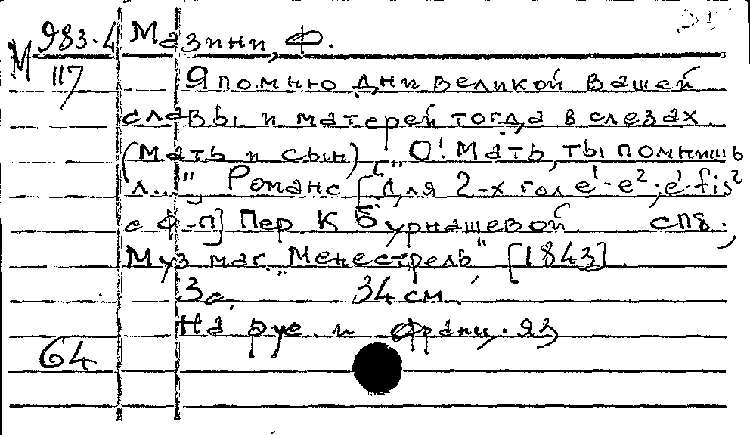 М 983-4 Мазини, Ф.
117 Я помню дни великой вашей
славы и матерей тогда в слезах.
(Мать и сын) [„О! Мать, ты помнишь
л..."] Романс [для 2-х гол e¹-e²; e¹-fis²
с ф-п] Пер К Бурнашевой СПБ.,
Муз маг. „Менестрель", [1843]
3 с. 34 см.
На рус. и франц. яз
64